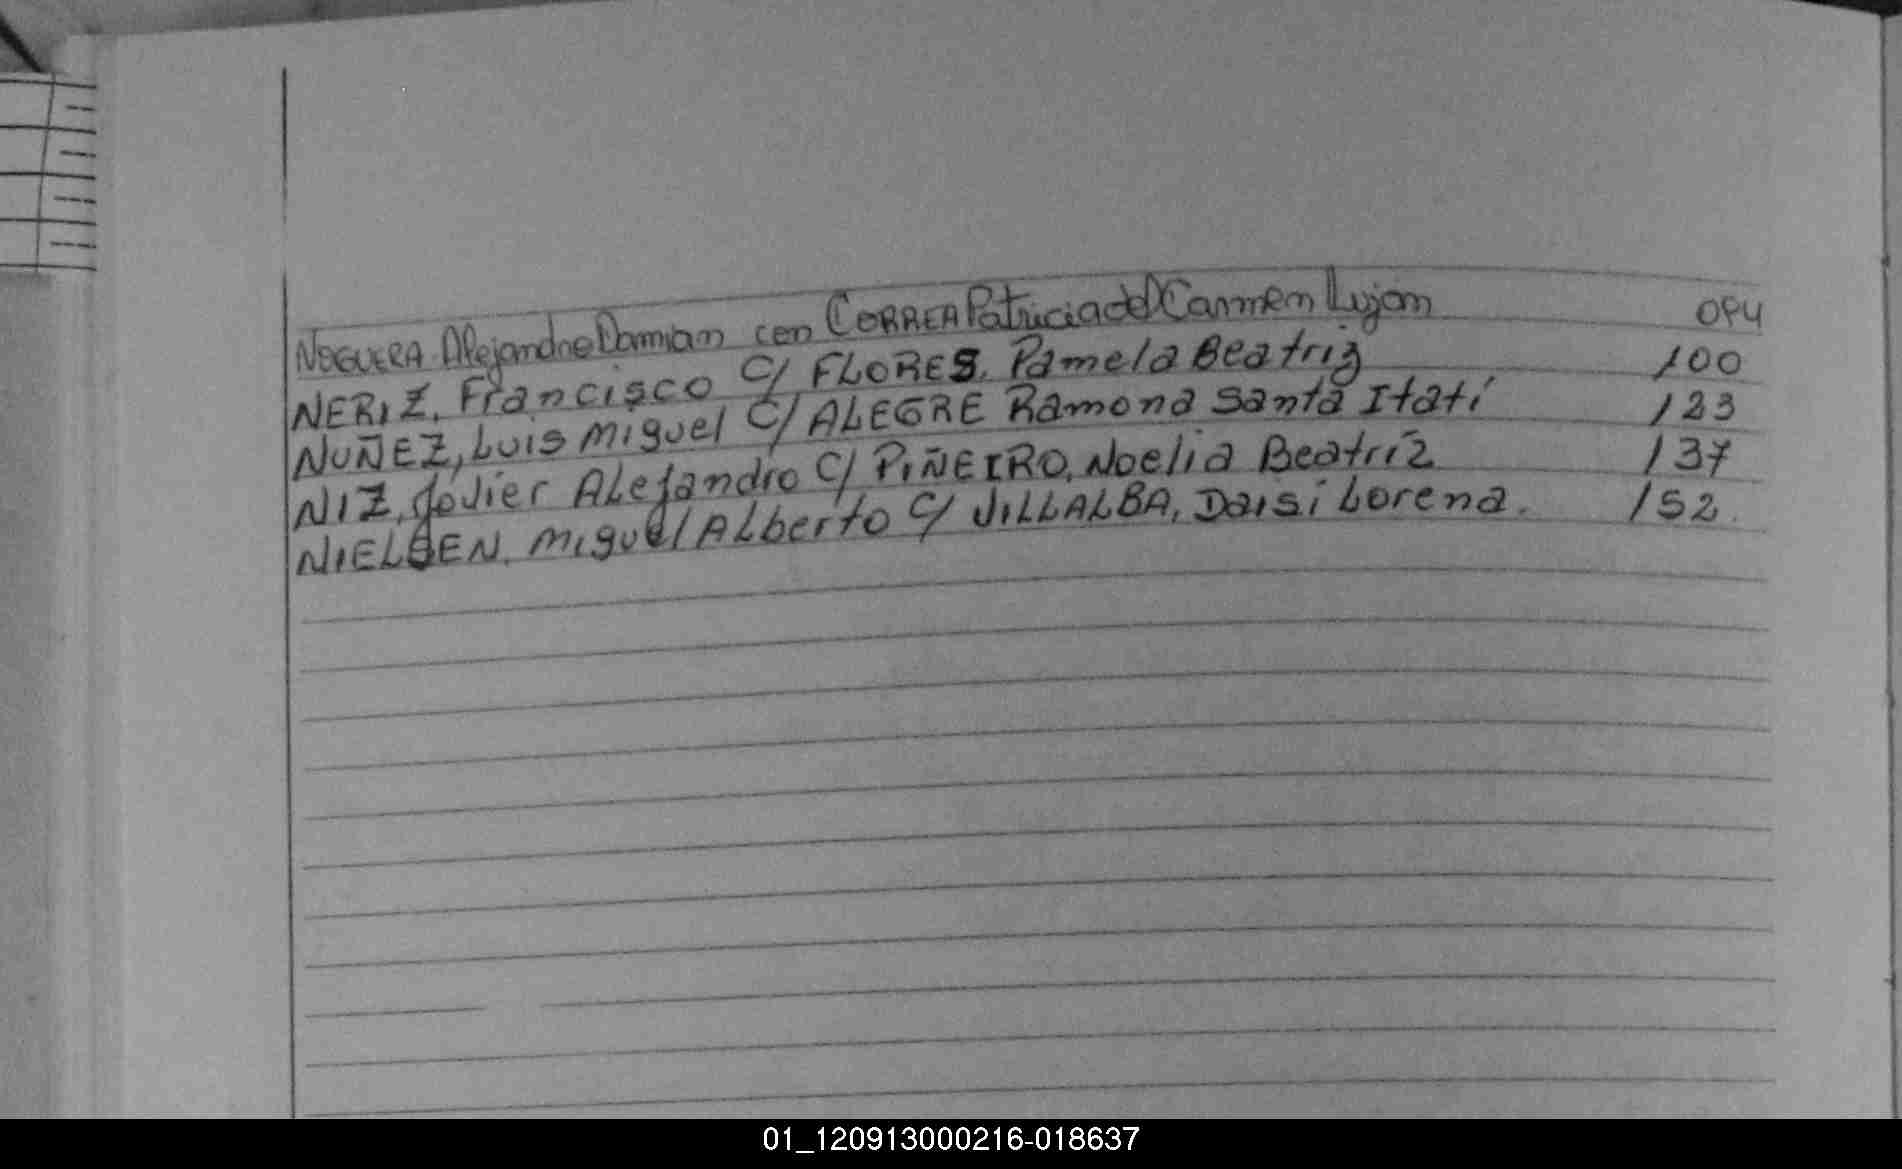 NOGUERA Alejandro Damian con CORREA Patricia del Carmen Lujan 084
NERIZ, Francisco C/ FLORES, Pamela Beatriz 100
NUÑEZ, Luis Miguel C/ ALEGRE Ramona Santa Itatí 123
NIZ, Javier Alejandro C/ PIÑEIRO, Noelia Beatríz 137
NIELSEN, Miguel Alberto C/ VILLALBA, Daisi Lorena. 152.
01_120913000216-018637